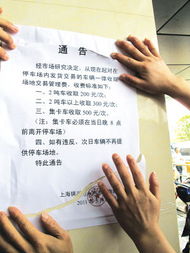 通 告
经市场研究决定,从现在起对在
停车场内发货交易的车辆一律收取
场地交易管理费。收费标准如下:
一、2 吨车收取 200 元/次。
二、2 吨车以上收取 300 元/次。
三、集卡车收取 500 元/次。
(注:集卡车必须在当日晚 8 点
前离开停车场)
四、如有违反,次日车辆不再提
供停车场地。
特此通告
上海
2011